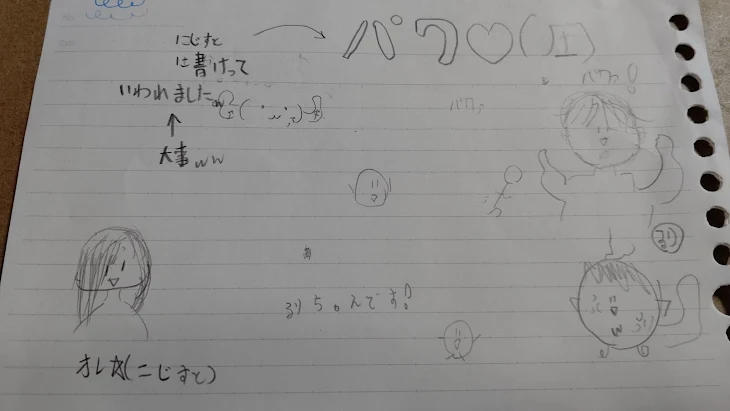 にじすと
は書けって
いわれましたw
↑
大事ww
パワ♡(圧)
パワッ!
パワッ
るちゃんです!
オレ☆(にじすと)